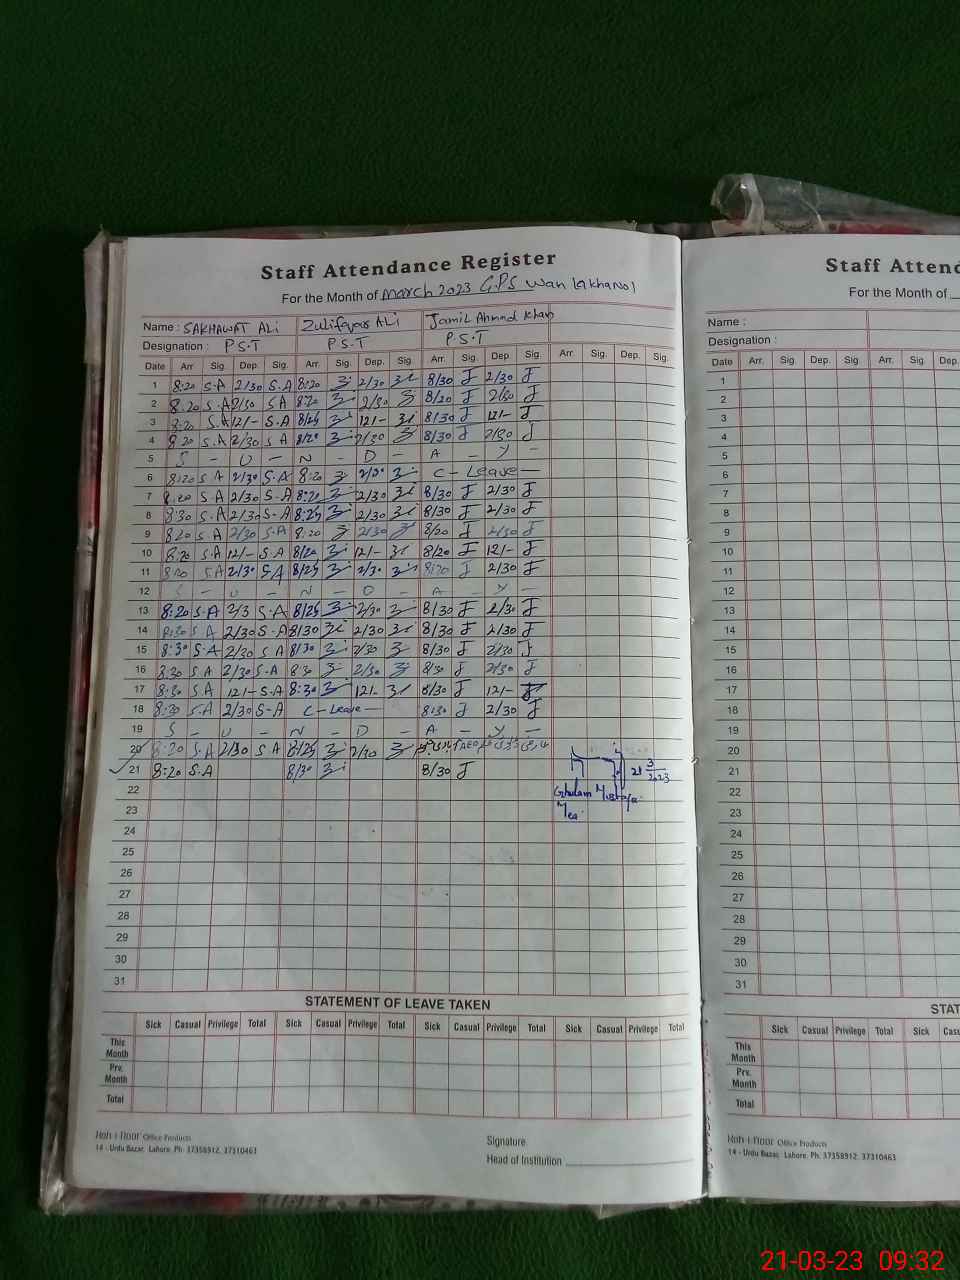 Staff Attendance Register
For the Month of March 2023 G.P.S Wan lakhano 1
Name : SAKHAWAT ALi Zulifqar ALi Jamil Ahmad Khan
Designation : P.S.T P.S.T P.S.T
Date Arr. Sig. Dep. Sig. Arr. Sig. Dep. Sig. Arr. Sig. Dep. Sig. Arr. Sig. Dep. Sig.
1 8:20 S.A 2/30 S.A 8:20 2/30 8/30 J 2/30 J
2 8:20 S.A 2/30 S A 8:20 2/30 8/20 J 2/30 J
3 8:20 S.A 12/- S.A 8/25 12/- 8/30 J 12/- J
4 8 20 S.A 2/30 S A 8/20 2/30 8/30 J 2/30 J
5 S - U - N - D - A - Y -
6 8:20 S A 2/30 S.A 8:20 2/30 C - Leave -
7 8:20 S.A 2/30 S-A 8:20 2/30 8/30 J 2/30 J
8 8:30 S.A 2/30 S-A 8:25 2/30 8/30 J 2/30 J
9 8:20 S A 2/30 S.A 8:20 2/30 8/20 J 2/30 J
10 8:20 S.A 12/- S.A 8/20 12/- 8/20 J 12/- J
11 8:20 S.A 2/30 S.A 8/25 2/30 8/20 J 2/30 J
12 S - U - N - D - A - Y -
13 8:20 S.A 2/3 S.A 8/25 2/30 8/30 J 2/30 J
14 8:30 S A 2/30 S-A 8/30 2/30 8/30 J 2/30 J
15 8:30 S.A 2/30 S A 8/30 2/30 8/30 J 2/30 J
16 8:30 S.A 2/30 S.A 8:30 2/30 8/30 J 2/30 J
17 8:30 S.A 12/- S.A 8:30 12/- 8/30 J 12/- J
18 8:30 S.A 2/30 S-A C - Leave - 8:30 J 2/30 J
19 S - U - N - D - A - Y -
20 8:20 S.A 2/30 S A 8/25 2/30
21 8:20 S.A 8/30 8/30 J
21 3 2023
Ghulam Mustafa
Mea
22
23
24
25
26
27
28
29
30
31
STATEMENT OF LEAVE TAKEN
Sick Casual Privilege Total Sick Casual Privilege Total Sick Casual Privilege Total Sick Casual Privilege Total
This Month
Prv. Month
Total
Koh-i-Noor Office Products
14 - Urdu Bazar, Lahore. Ph: 37358912, 37310463
Signature
Head of Institution
Staff Attend
For the Month of
Name :
Designation :
Date Arr. Sig. Dep. Sig. Arr. Sig. Dep.
1
2
3
4
5
6
7
8
9
10
11
12
13
14
15
16
17
18
19
20
21
22
23
24
25
26
27
28
29
30
31
STAT
Sick Casual Privilege Total Sick Casu
This Month
Prv. Month
Total
Koh-i-Noor Office Products
14 - Urdu Bazar, Lahore. Ph. 37358912, 37310463
21-03-23 09:32